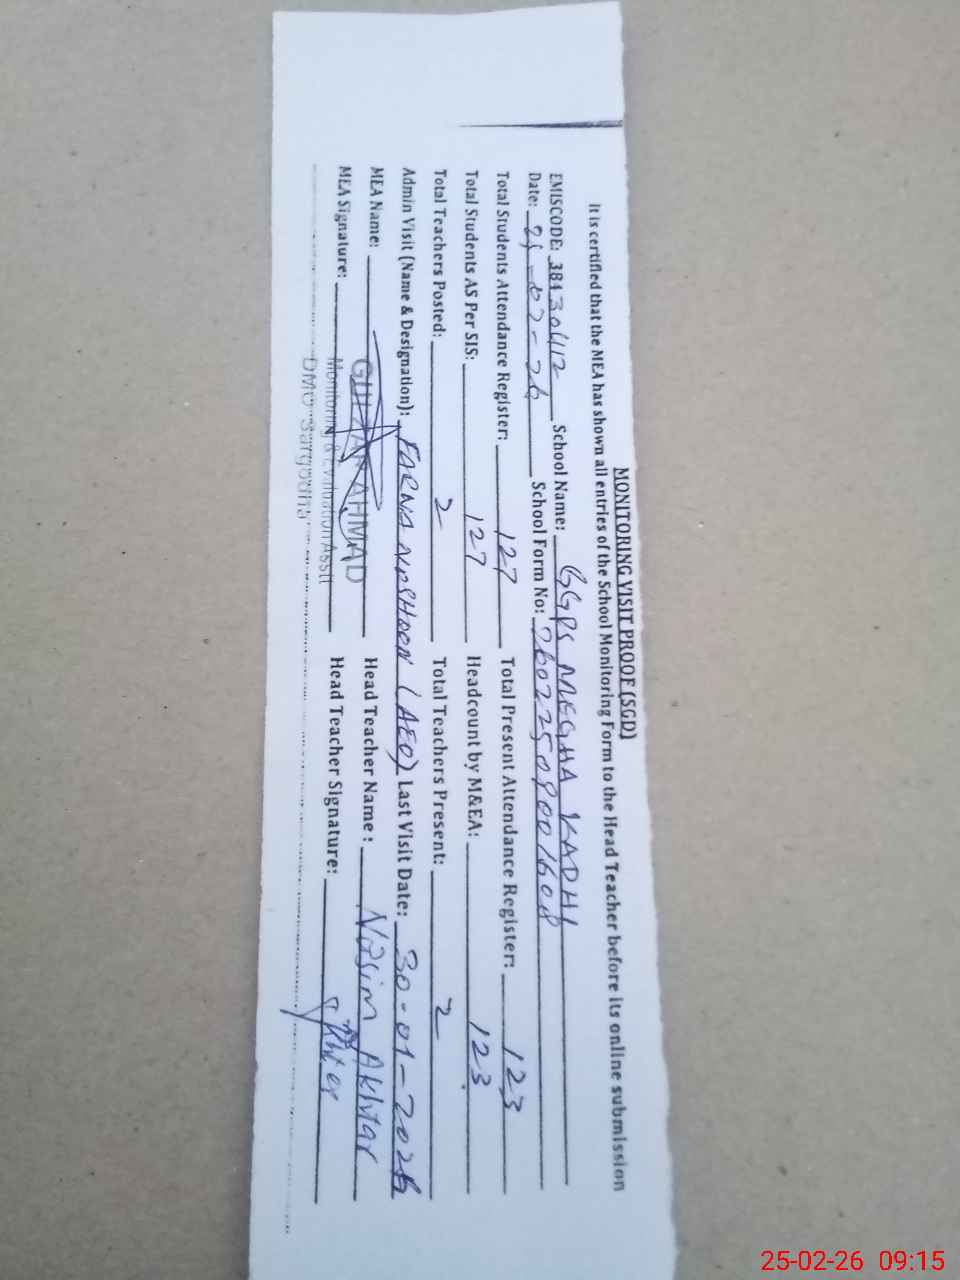 MONITORING VISIT PROOF (SGD)
It is certified that the MEA has shown all entries of the School Monitoring Form to the Head Teacher before its online submission
EMISCODE: 38130412 School Name: GGPS MEGHA KADHI
Date: 25-02-26 School Form No:
Total Students Attendance Register: 127 Total Present Attendance Register: 123
Total Students AS Per SIS: 127 Headcount by M&EA: 123
Total Teachers Posted: 2 Total Teachers Present: 2
Admin Visit (Name & Designation): NOSHEEN (AEO) Last Visit Date: 30-01-2026
MEA Name: GULZAR AHMAD Head Teacher Name : Nasim Akhtar
MEA Signature: Monitoring & Evaluation Asstt Head Teacher Signature:
DMO Sargodha
25-02-26 09:15